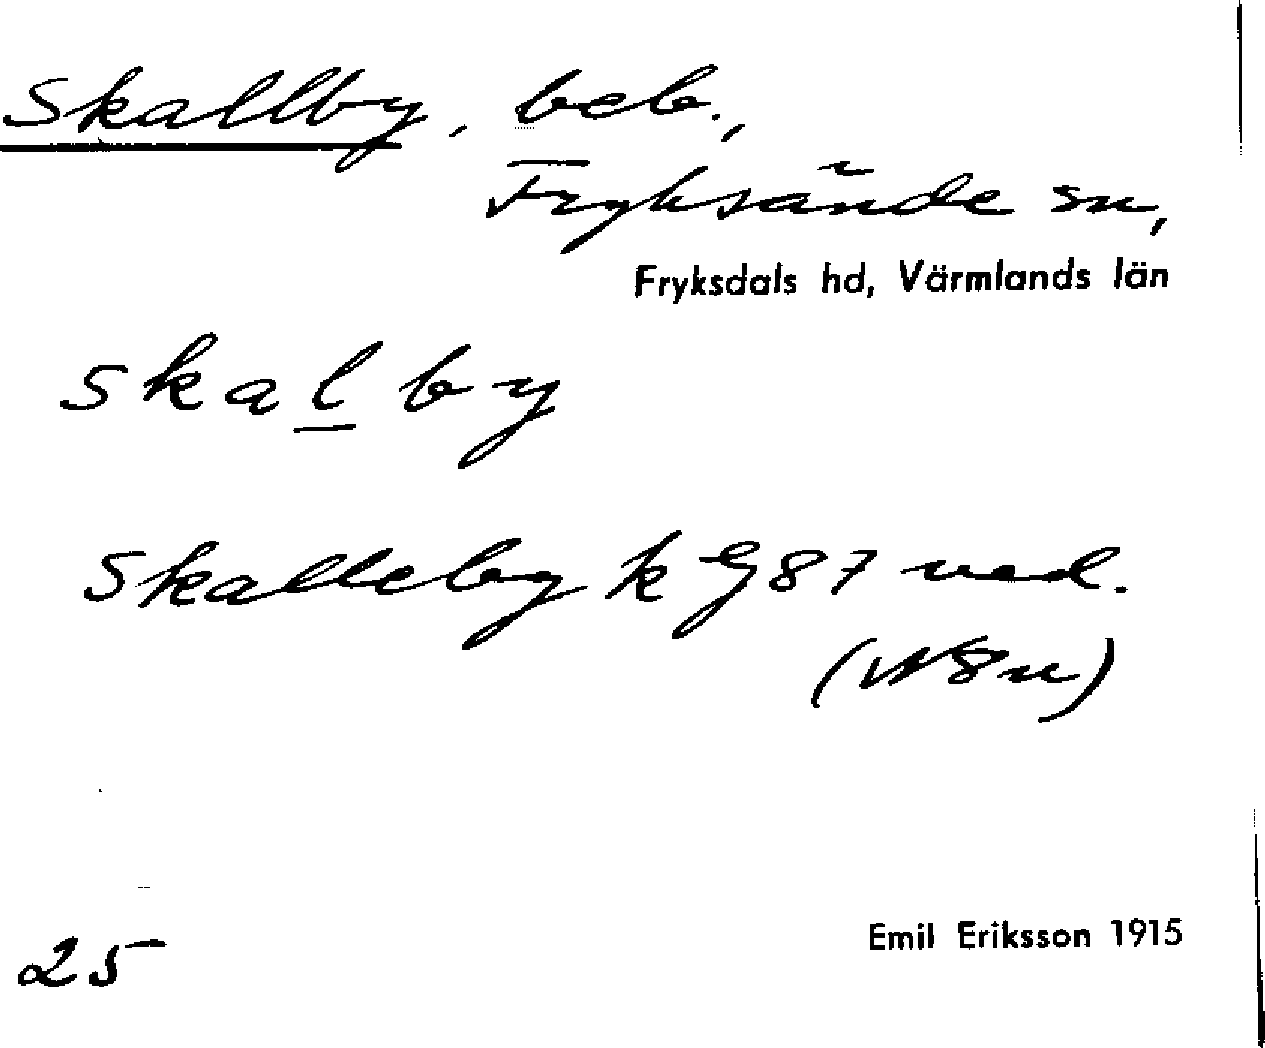 Skallby, beb.,
Fryksände sn,
Fryksdals hd, Värmlands län
skalby
Skalleby k G 87 ved.
25
Emil Eriksson 1915